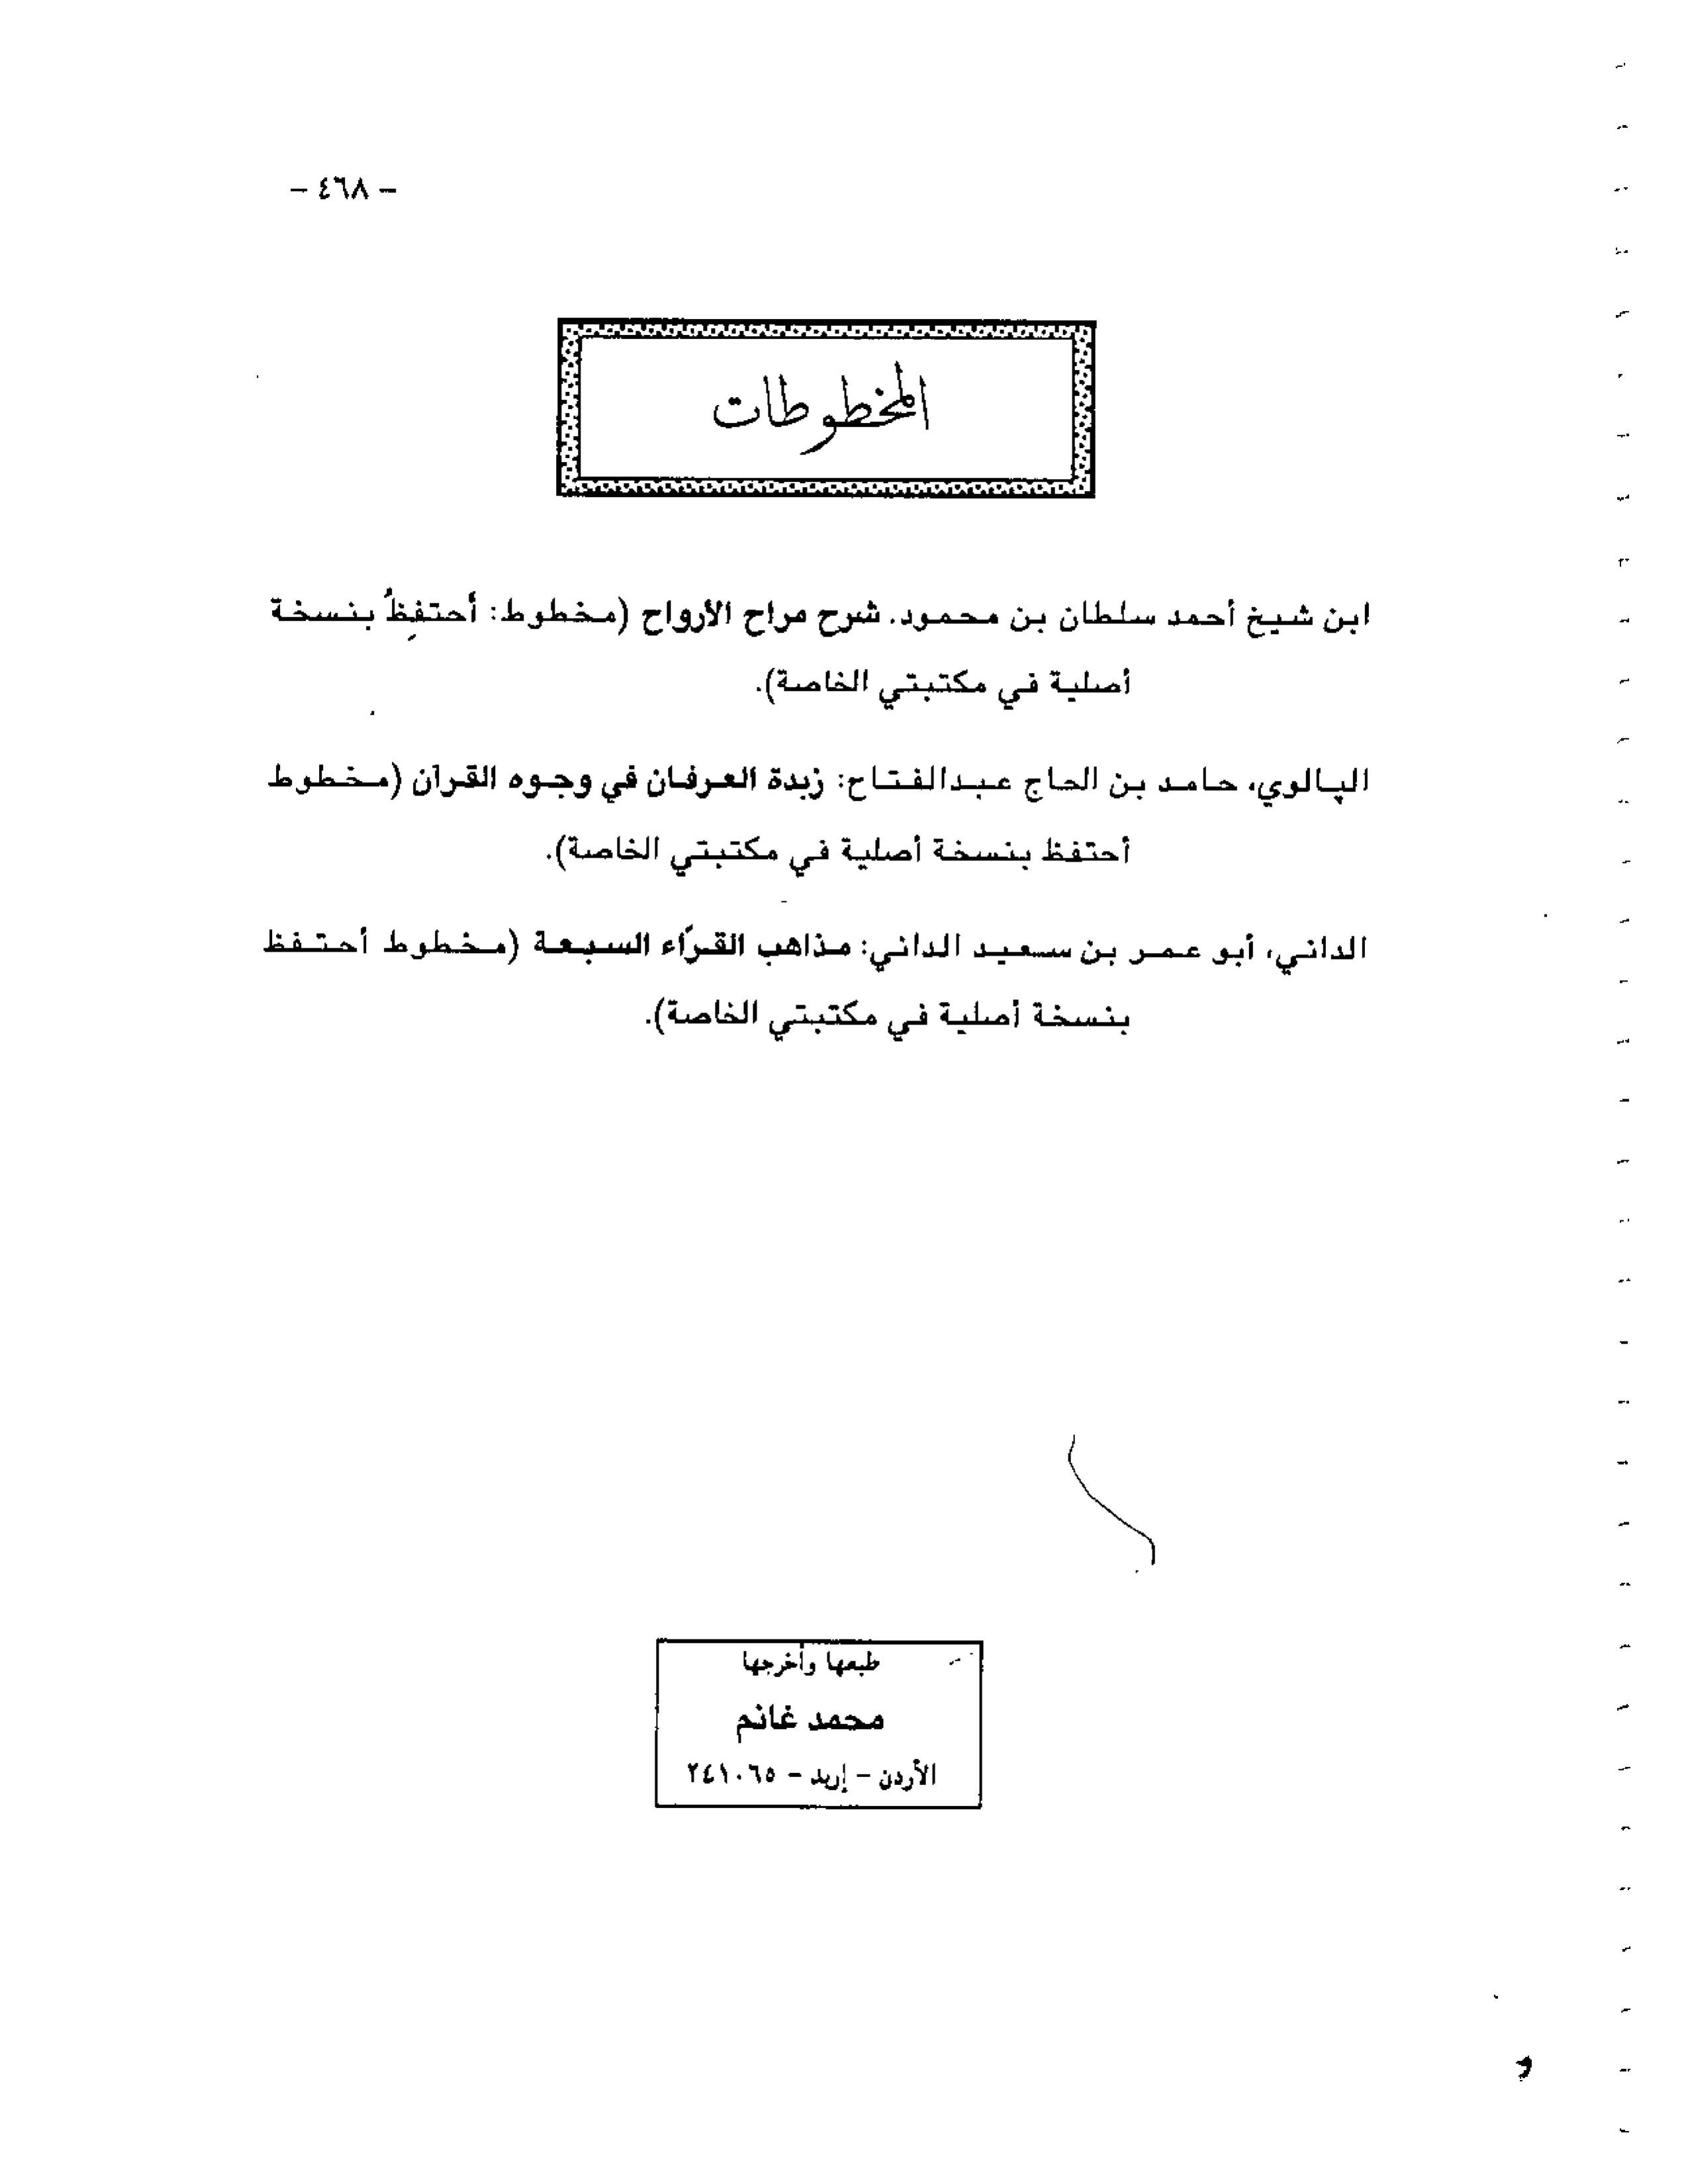 - ٤٦٨ -
المخطوطات
ابن شيخ أحمد سلطان بن محمود. شرح مراح الأرواح (مخطوط: أحتفِظُ بنسخة
أصلية في مكتبتي الخاصة).
الپالوي، حامد بن الحاج عبدالفتاح: زبدة العرفان في وجوه القرآن (مخطوط
أحتفظ بنسخة أصلية في مكتبتي الخاصة).
الداني، أبو عمر بن سعيد الداني: مذاهب القرّاء السبعة (مخطوط أحتفظ
بنسخة أصلية في مكتبتي الخاصة).
طبعها وأخرجها
محمد غانم
الأردن - إربد - ٢٤١٠٦٥